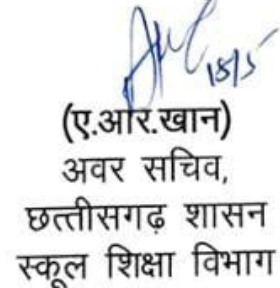 18/5
(ए.आर.खान)
अवर सचिव,
छत्तीसगढ़ शासन
स्कूल शिक्षा विभाग